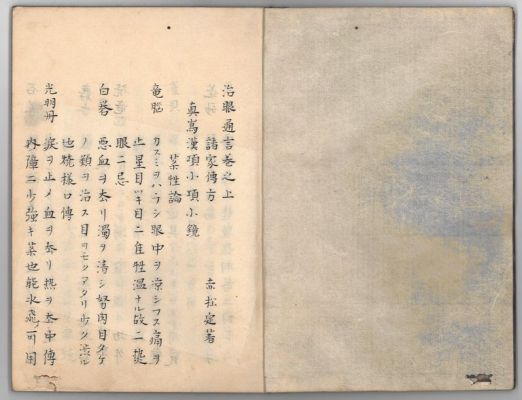 治眼通言巻之上
諸家傳方　赤松定著
真嶌漢項小項小鏡
薬性論
竜脳　カスミヲハラシ眼中ヲ涼シフス痛ヲ
止星目ツキ目ニ准性温ナル故ニ
眼ニ忌
白礬　悪血ヲ去リ濁ヲ清シ努肉目タヽ
ノ類ヲ治ス目ヲモツアタリ
也焼様口傳
光明丹　涙ヲ止メ血ヲ去リ熱ヲ去中傳
内障ニ少強キ薬也能水飛可用